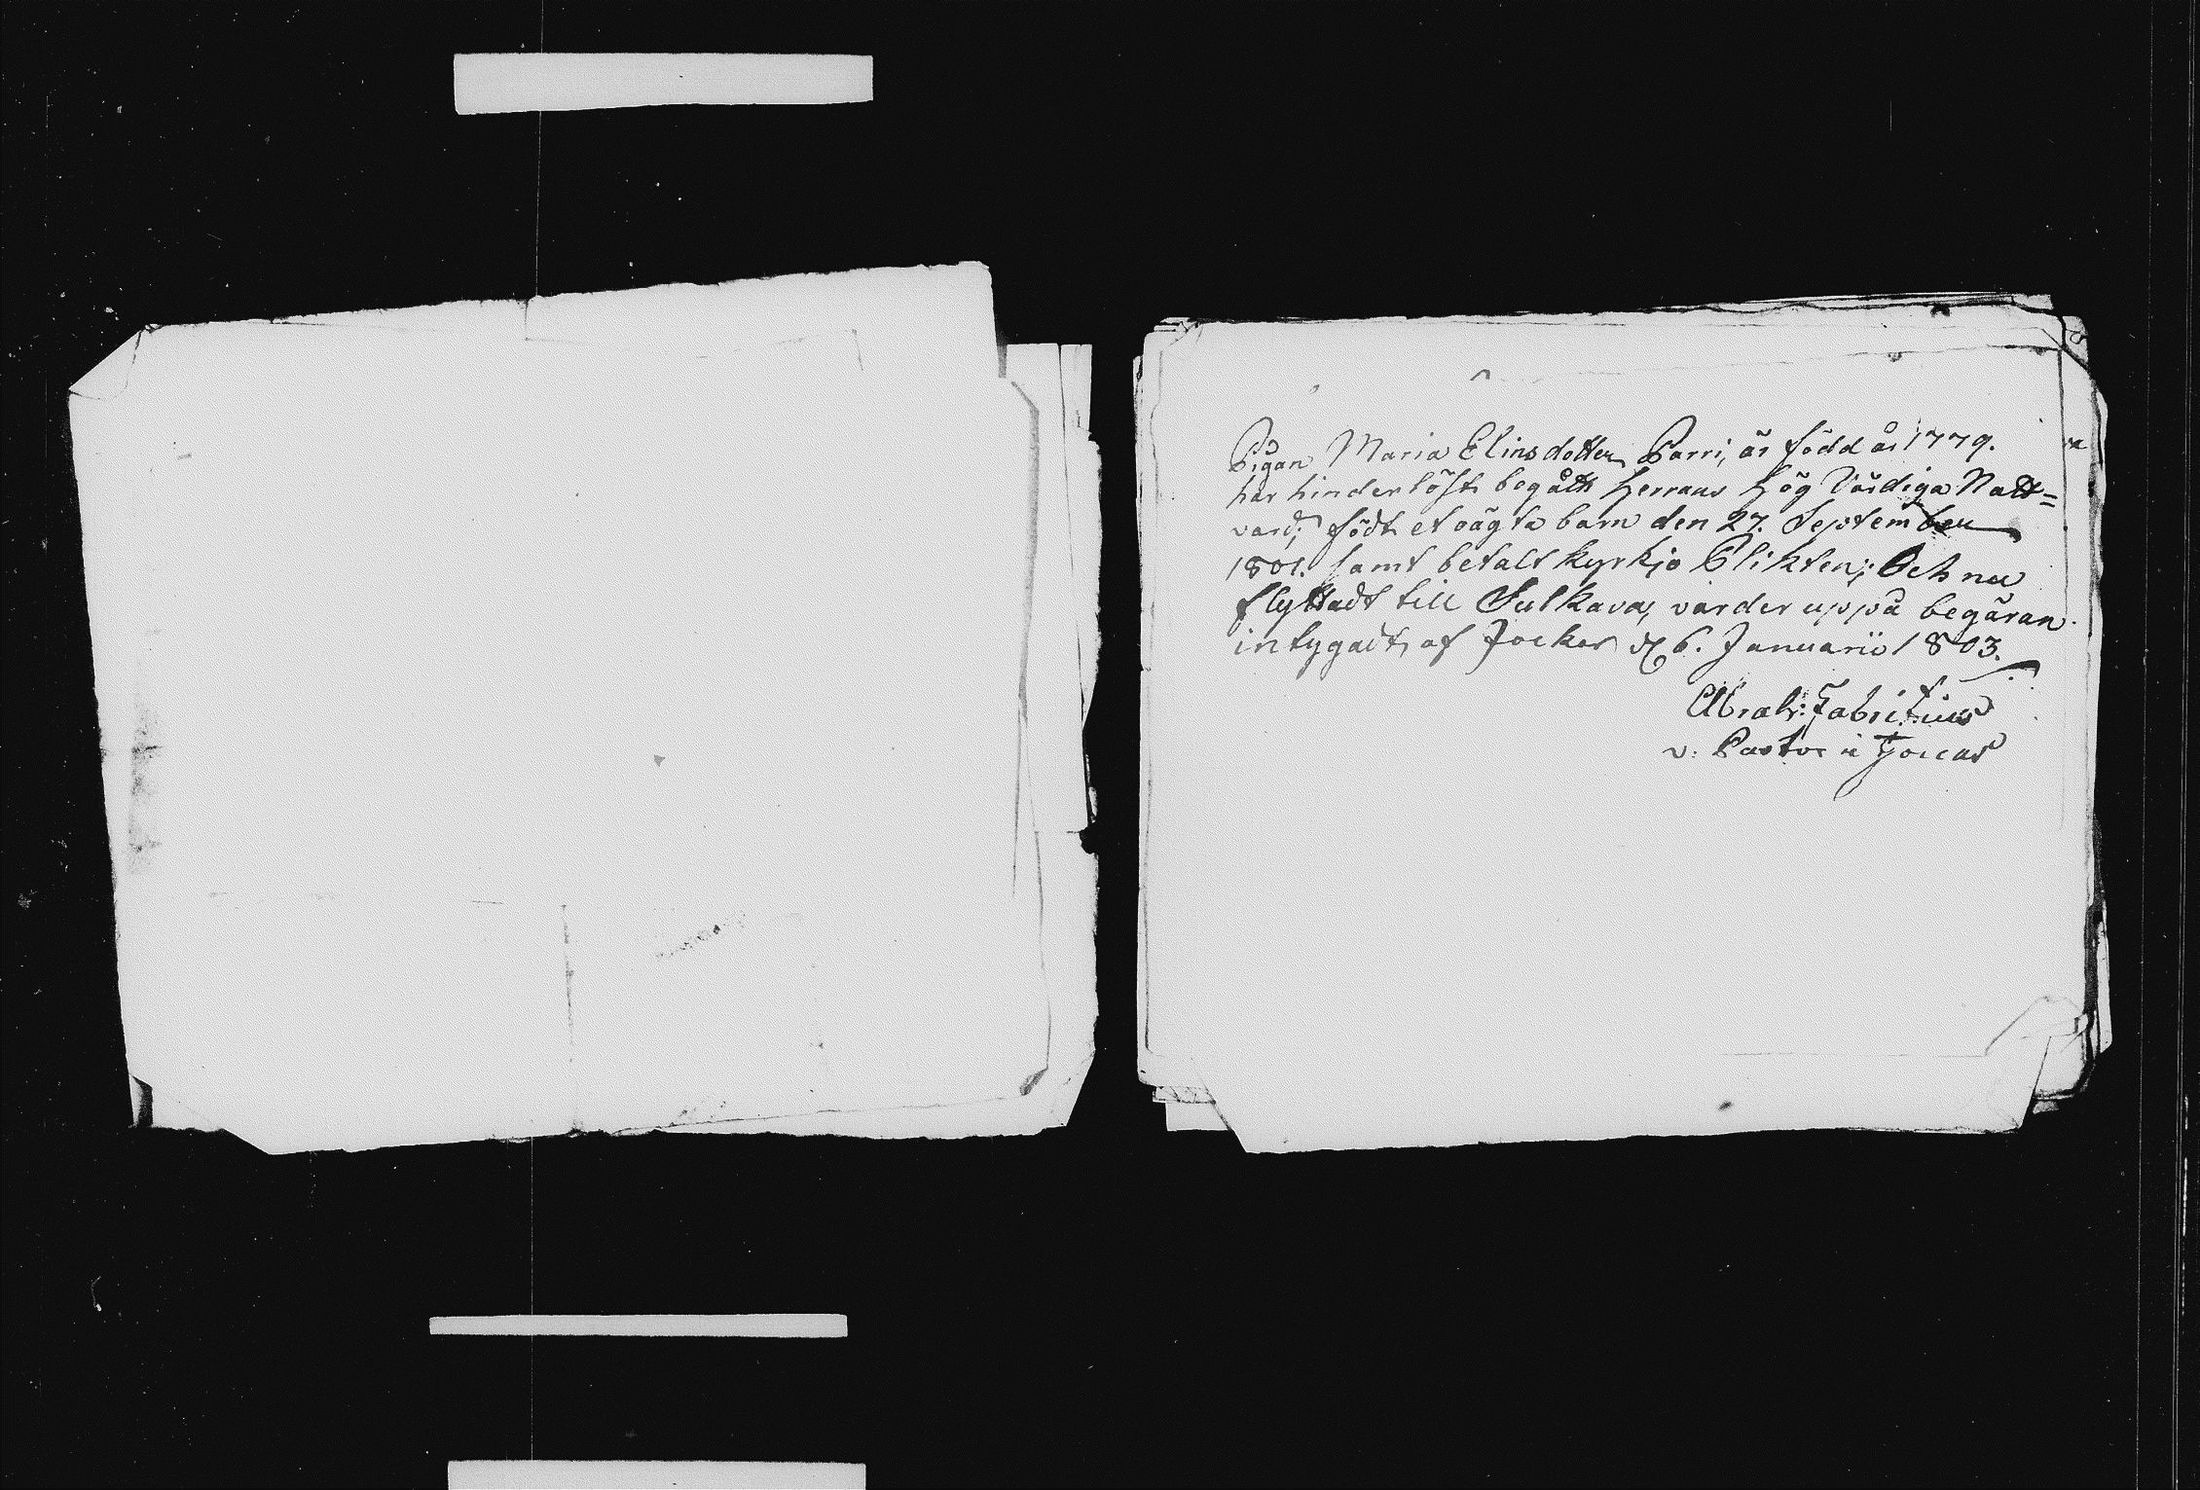 Pigan Maria Elinsdotter Parri, är född år 1779.
har hinderlöst begått Herrans Hög Värdiga Natt=
vard; födt et oägta barn den 27. September
1801. samt betalt kyrkjo Plikten; Och nu
flyttadt till Sulkava, varder uppå begäran
intygadt, af Jockas d 6. Januarii 1803.
Abrah: Fabritius
v. Pastor i Joccas